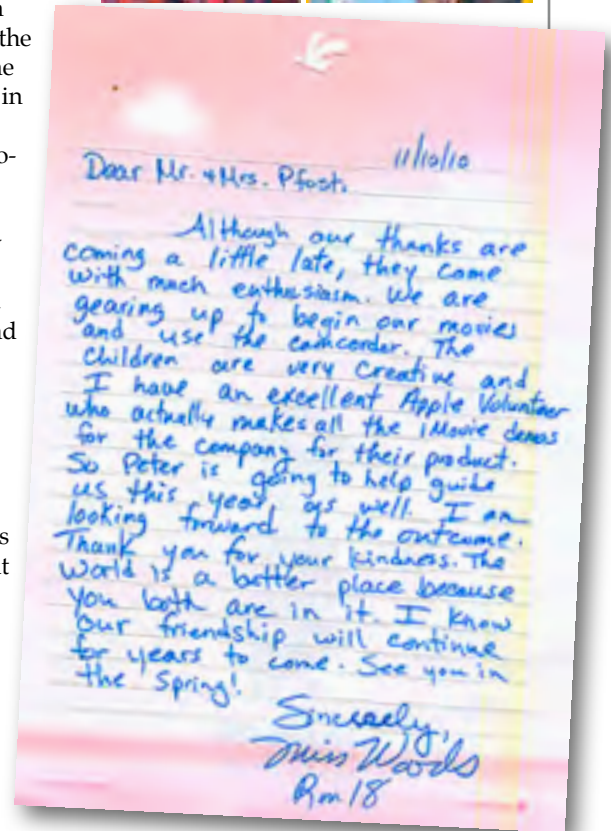 the
in
11/10/10
Dear Mr. & Mrs. Pfost,
Although our thanks are
coming a little late, they come
with much enthusiasm. We are
gearing up to begin our movies
and use the camcorder. The
children are very creative and
I have an excellent Apple Volunteer
who actually makes all the iMovie demos
for the company for their product.
So Peter is going to help guide
us this year as well. I am
looking forward to the outcome.
Thank you for your kindness. The
world is a better place because
you both are in it. I know
our friendship will continue
for years to come. See you in
the Spring!
Sincerely,
Miss Woods
Rm 18